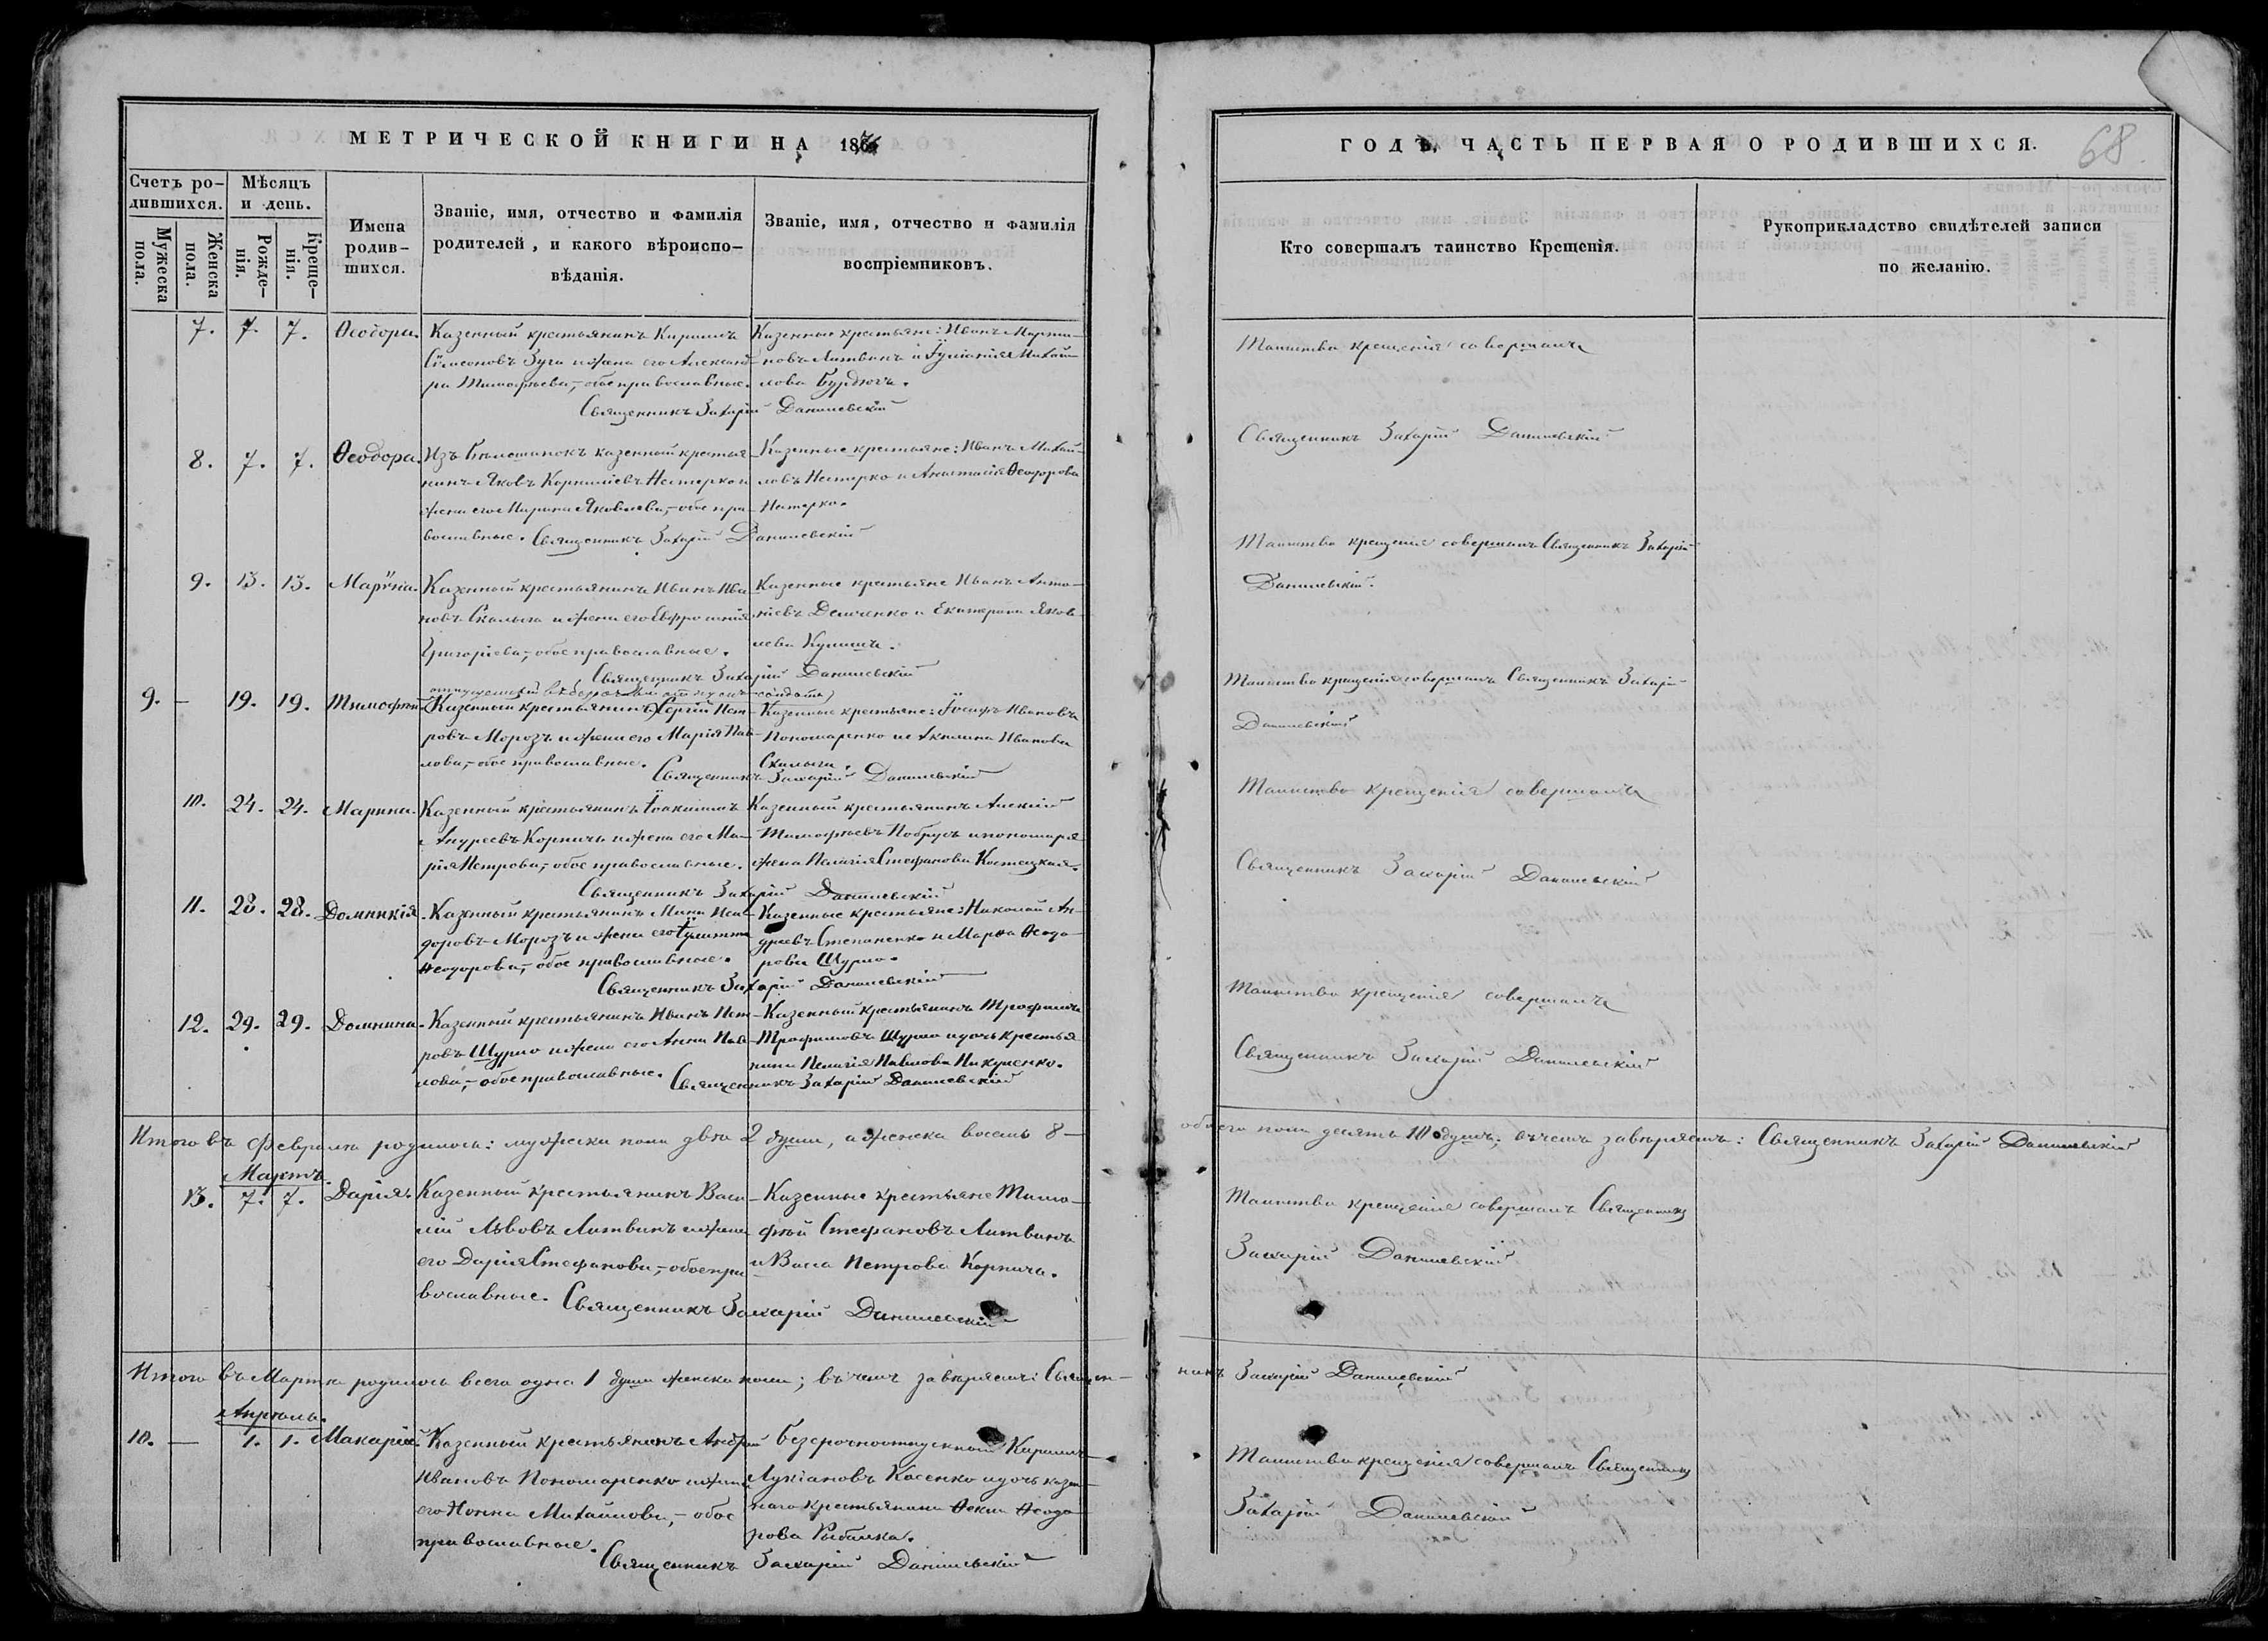 МЕТРИЧЕСКОЙ КНИГИ НА 186
ГОДЪ, ЧАСТЬ ПЕРВАЯ О РОДИВШИХСЯ.
68.
Счетъ ро-
дившихся.
Мужеска
пола.
Женска
пола.
Мѣсяцъ
и день.
Рожде-
нія.
Креще-
нія.
Имена
родив-
шихся.
Званіе, имя, отчество и фамилія
родителей, и какого вѣроиспо-
вѣданія.
Званіе, имя, отчество и фамилія
воспріемниковъ.
Кто совершалъ таинство Крещенія.
Рукоприкладство свидѣтелей записи
по желанію.
7. 7. 7. Ѳеодора.
Казенный крестьянинъ Кириллъ
Сѵмеоновъ Зуга и жена его Александ-
ра Тимофеева,- обое православные.
Казенные крестьяне: Иванъ Марти-
новъ Литвинъ и Іуліанія Михаи-
лова Бурдюгъ.
Священникъ Захарій Данилевскій
Таинство крещенія совершалъ
Священникъ Захарій Данилевскій
8. 7. 7. Ѳеодора.
Изъ казенный крестья-
нинъ Яковъ Корниліевъ Нестерко и
жена его Марина Яковлева,- обое пра-
вославные. Священникъ Захарій Данилевскій
Казенные крестьяне: Иванъ Михай-
ловъ Нестерко и Анастасія Ѳеодорова
Нестерко.
Таинство крещенія совершалъ Священникъ Захарій
Данилевскій.
9. 13. 13. Марѵна.
Казенный крестьянинъ Иванъ Ива-
новъ Скалыга и жена его Евфросинія
Григоріева,- обое православные.
Казенные крестьяне Иванъ Анто-
ніевъ Демченко и Екатерина Яков-
лева Кулишъ.
Священникъ Захарій Данилевскій
Таинство крещенія совершалъ Священникъ Захарій
Данилевскій
9. - 19. 19. Тимофей
Казенный крестьянинъ Сергій Пет-
ровъ Морозъ и жена его Марія Пав-
лова,- обое православные.
Казенные крестьяне: Іосифъ Ивановъ
Пономаренко и Акилина Иванова
Скалыга.
Священникъ Захарій Данилевскій
Таинство крещенія совершалъ
Священникъ Захарій Данилевскій
10. 24. 24. Марина.
Казенный крестьянинъ Іоакимъ
Андреевъ Корпичъ и жена его Ма-
рія Петрова,- обое православные.
Казенный крестьянинъ Алексій
Тимофеевъ Побрусъ и пономаря
жена Пелагія Стефанова Костецкая.
Священникъ Захарій Данилевскій
11. 28. 28. Домникія.
Казенный крестьянинъ Мина Иси-
доровъ Морозъ и жена его Іулитта
Ѳеодорова,- обое православные.
Казенные крестьяне: Николай Ан-
дреевъ Степаненко и Марѳа Ѳеодо-
рова Щурко.
Священникъ Захарій Данилевскій
Таинство крещенія совершалъ
Священникъ Захарій Данилевскій
12. 29. 29. Домнина.
Казенный крестьянинъ Иванъ Пет-
ровъ Щурко и жена его Анна Пав-
лова,- обое православные.
Казенный крестьянинъ Трофимъ
Трофимовъ Щурко и дочь крестья-
нина Пелагія Павлова Пикуленко.
Священникъ Захарій Данилевскій
Итого въ Февралѣ родилось: мужеска пола два 2 души, а женска восемь 8-
обоего пола десять 10 душъ; въ чемъ завѣряемъ: Священникъ Захарій Данилевскій
Мартъ.
13. 7. 7. Дарія.
Казенный крестьянинъ Васи-
лій Львовъ Литвинъ и жена
его Дарія Стефанова,- обое пра-
вославные. Священникъ Захарій Данилевскій
Казенные крестьяне Тимо-
фей Стефановъ Литвинъ
и Васса Петрова Корпичъ.
Таинство крещенія совершалъ Священникъ
Захарій Данилевскій
Итого въ Мартѣ родилось всего одна 1 душа женска пола; въ чемъ завѣряемъ: Священ-
никъ Захарій Данилевскій
Апрѣль.
10. - 1. 1. Макарій.
Казенный крестьянинъ Андрей
Ивановъ Пономаренко и жена
его Нонна Михайлова,- обое
православные.
Безсрочноотпускный Кириллъ
Лукіановъ Косенко и дочь казен-
наго крестьянина Ѳекла Ѳеодо-
рова Рыбалка.
Священникъ Захарій Данилевскій
Таинство крещенія совершалъ Священникъ
Захарій Данилевскій